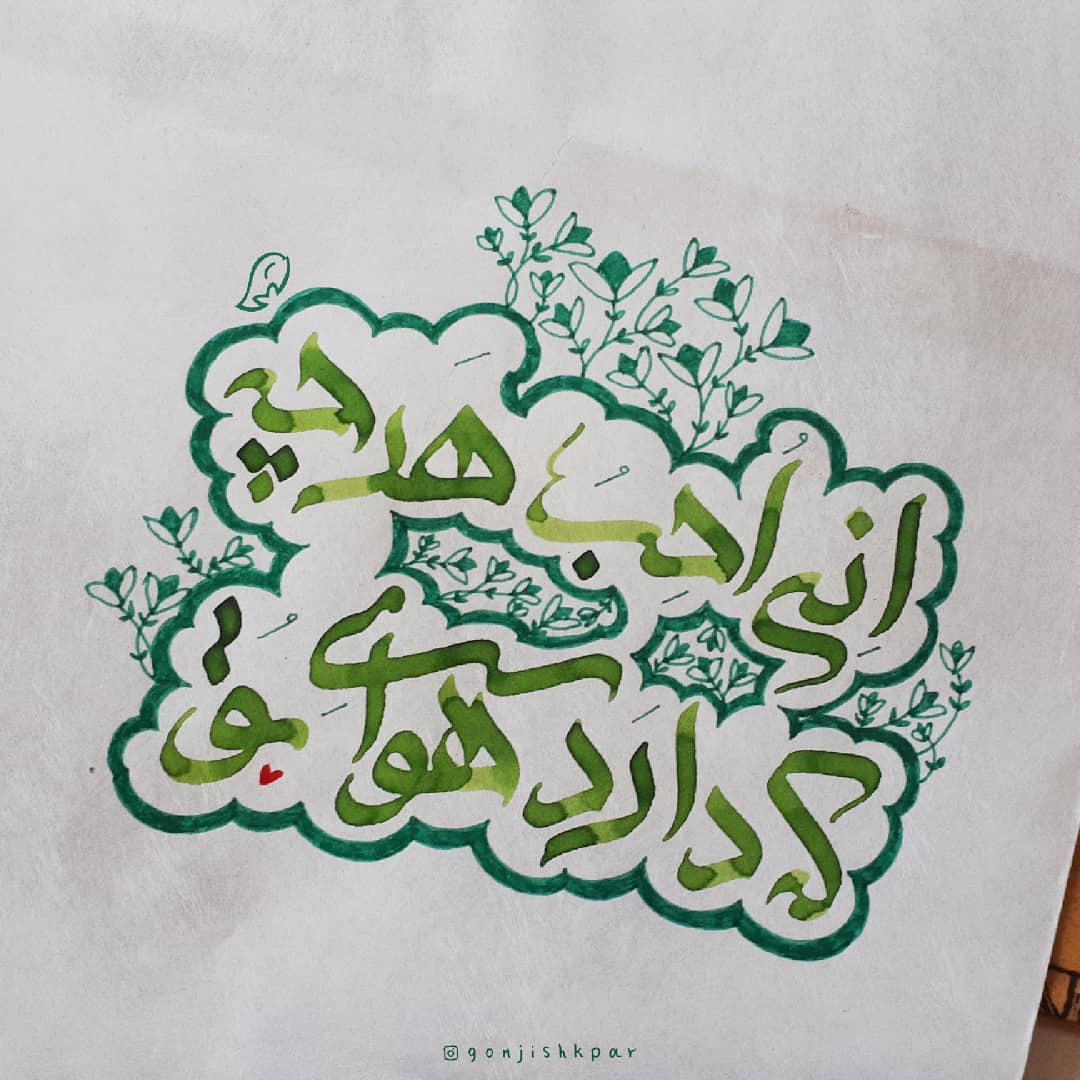 انی احب هرچه
که دارد هوای تو
gonjishkpar